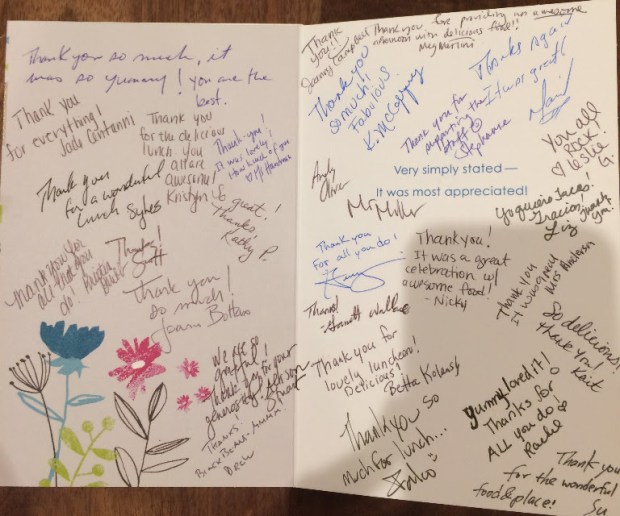 Thank you so much, it
was so yummy! You are the
best.
Thank you
for everything!
Jade
Thank you
for the delicious
lunch. You
all are
awesome!
Kristyn
Thank-you!
It was lovely!
Thank you
for a wonderful
lunch Sykes
So great!
Thanks,
Kathy P.
Thank you for
all that you
do!
Thanks!
Thank you
so much!
Joann Bottaro
We are so
grateful!
Thank you for your
generosity.
Thanks.
Black Beans-mmmm!
Drew
Thank
you!!
Jeremy Campbell
Thank you for providing an awesome
afternoon with delicious food!!
Meg
Thank you
so much!
Fabulous.
Thanks again
It was great!
Thank you for
supporting the
staff
Stephanie
You all
ROCK!
Leslie G.
Very simply stated—
It was most appreciated!
Andy
Oliver
McMiller
Yo quiero tacos!
Gracias!
Liz
Thank
you!
Thank you
for all you do!
Thank you!
It was a great
celebration w/
awesome food!
-Nicky
Thank you
It was great
Mrs
Thanks!
Thank you for
lovely luncheon!
Delicious!
Betta
So delicious!
thank you!
Kait
Thank you so
much for lunch...
yummy loved it!
Thanks for
ALL you do!
Rachel
Thank you
for the wonderful
food & place!
Su